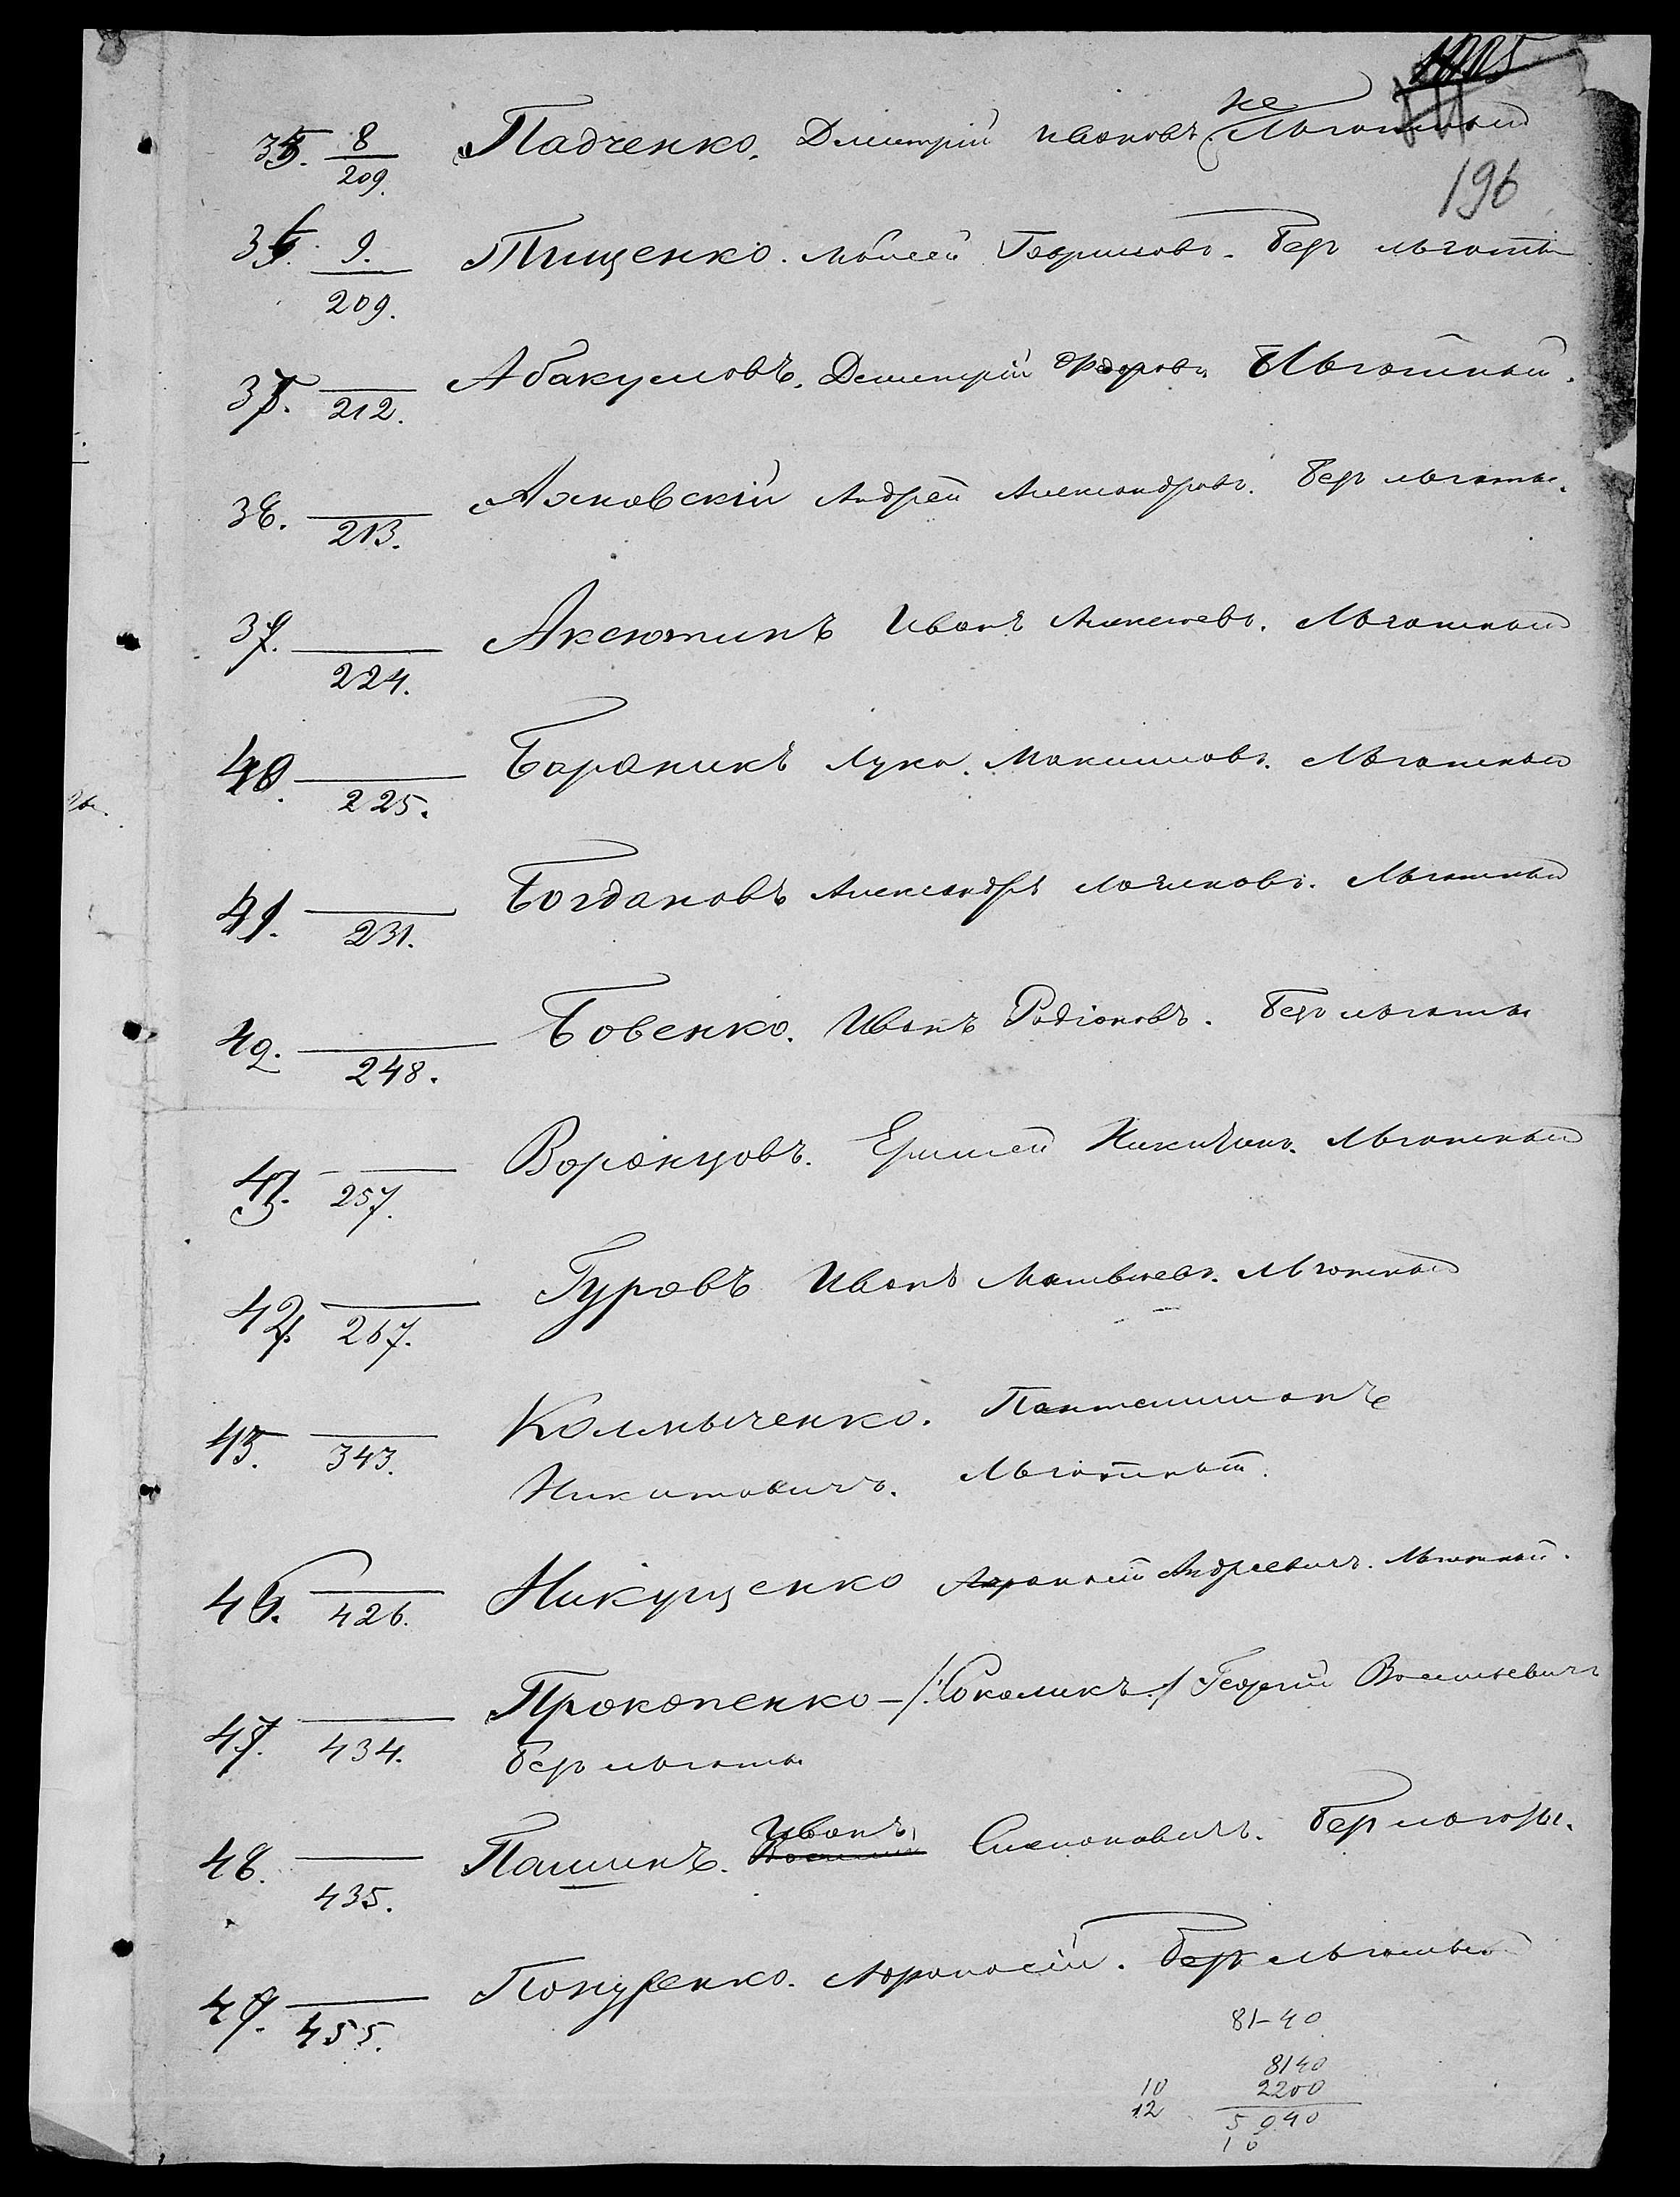 196
35. 8/209. Падченко. Дмитрій Ивановъ. не Льготный
36. 9./209. Тищенко. Моисей Ефримовъ. Безъ льготы
37. 212. Абакумовъ. Дмитрій Ѳедоровъ Льготный.
38. 213. Ахновскій Андрей Александровъ. Безъ льготы.
39. 224. Аксютинъ Иванъ Алексеевъ. Льготный
40. 225. Бараникъ Лука. Максимовъ. Льготный
41. 231. Богдановъ Александръ Логиновъ. Льготный
42. 248. Бовенко. Иванъ Родіоновъ. Безъ льготы
43. 257. Воронцовъ. Ермей Никитинъ. Льготный
44. 267. Гуровъ Иванъ Матвеевъ. Льготный
45. 343. Колмыченко. Пантелимонъ
Никитовичъ. Льготный.
46. 426. Никущенко Андреевичъ. Льготный.
47. 434. Прокопенко-/:Соколикъ:/ Георгій Васильевичъ
Безъ льготы
Иванъ
48. 435. Пашинъ. Василій Симоновичъ. Безъ льготы.
49. 455. Афанасій. Безъ льготный
81-40
8140
10 2200
12 5940
10